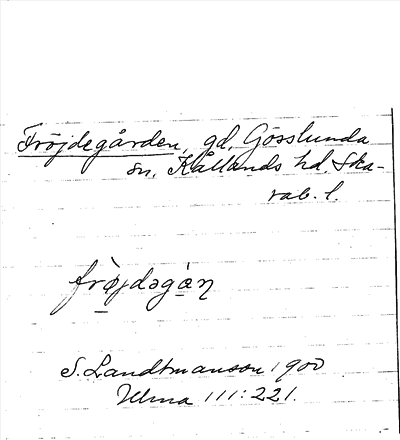 Fröjdegården, gd, Gösslunda
sn, Kållands hd. Ska-
rab. l.
frø̀jdəgàn̥
S. Landtmanson 1900
Ulma 111:221.